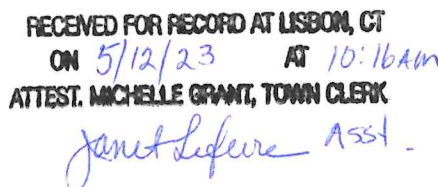 RECEIVED FOR RECORD AT LISBON, CT
ON 5/12/23 AT 10:16AM
ATTEST. MICHELLE GRANT, TOWN CLERK
Janet Lefevre Asst.